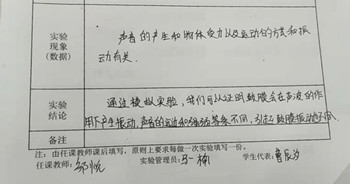 实验
现象
(数据)
声音的产生和物体受力以及运动的方式和振
动有关.
实验
结论
通过模拟实验,我们可以证明鼓膜会在声波的作
用下产生振动,声音的远近和强弱不同,引起鼓膜振动
备注
注:由任课教师课后填写,原则上要求每做一次实验填写一份。
任课教师: 实验管理员: 学生代表: